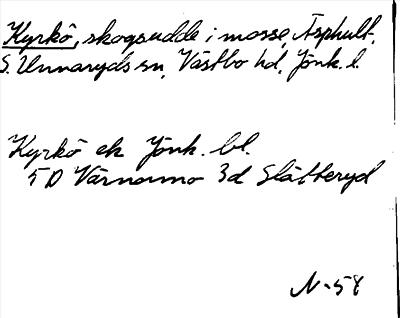 Kyrkö, skogsudde i mosse, Åsphult,
S. Unnaryds sn, Västbo hd, Jönk. l.
Kyrkö ek Jönk. bl.
5D Värnamo 3d Slätteryd
N-58